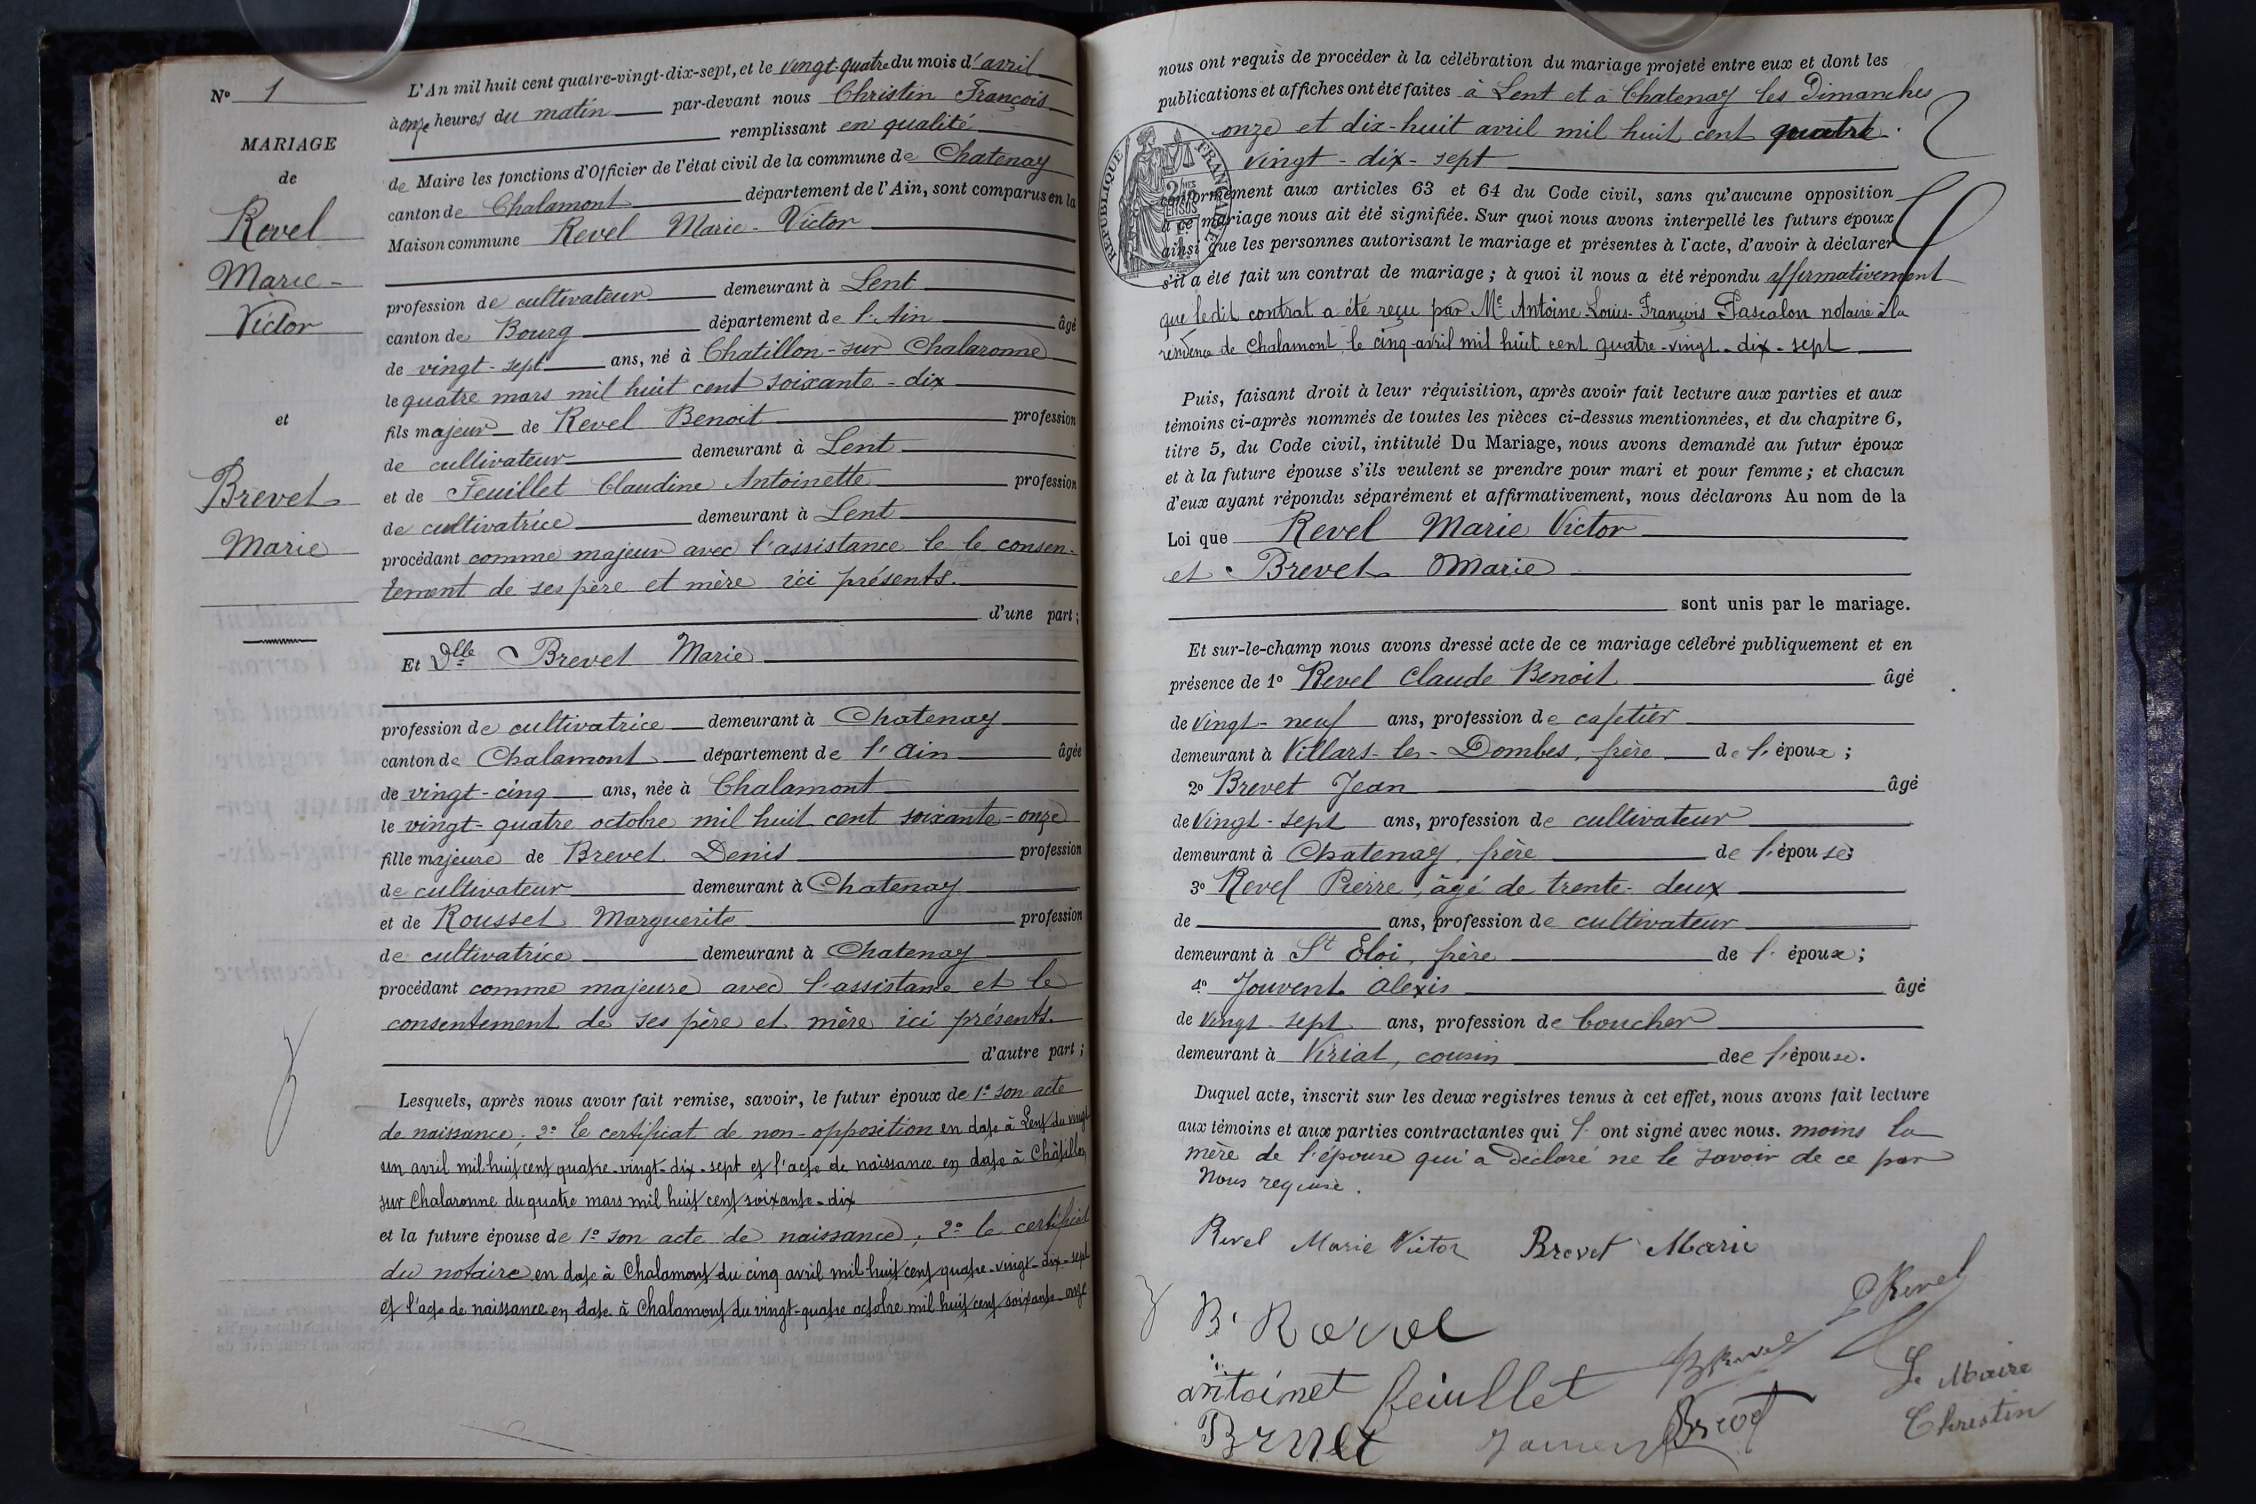 N° 1
MARIAGE
de
Revel
Marie-
Victor
et
Brevet
Marie
L'An mil huit cent quatre-vingt-dix-sept, et le vingt-quatre du mois d'avril
à onze heures du matin par-devant nous Christin François
remplissant en qualité
de Maire les fonctions d'Officier de l'état civil de la commune de Chatenay
canton de Chalamont département de l'Ain, sont comparus en la
Maison commune Revel Marie-Victor
profession de cultivateur demeurant à Lent
canton de Bourg département de l'Ain âgé
de vingt-sept ans, né à Chatillon-sur Chalaronne
le quatre mars mil huit cent soixante-dix
fils majeur de Revel Benoit profession
de cultivateur demeurant à Lent
et de Feuillet Claudine Antoinette profession
de cultivatrice demeurant à Lent
procédant comme majeur avec l'assistance le le consen-
tement de ses père et mère ici présents.
d'une part;
Et Dlle Brevet Marie
profession de cultivatrice demeurant à Chatenay
canton de Chalamont département de l'Ain âgée
de vingt-cinq ans, née à Chalamont
le vingt-quatre octobre mil huit cent soixante-onze
fille majeure de Brevet Denis profession
de cultivateur demeurant à Chatenay
et de Rousset Marguerite profession
de cultivatrice demeurant à Chatenay
procédant comme majeure avec l'assistance et le
consentement de ses père et mère ici présents.
d'autre part;
Lesquels, après nous avoir fait remise, savoir, le futur époux de 1° son acte
de naissance; 2° le certificat de non-opposition en date à Lent du vingt
un avril mil huit cent quatre-vingt-dix-sept et l'acte de naissance en date à Châtillon
sur Chalaronne du quatre mars mil huit cent soixante-dix
et la future épouse de 1° son acte de naissance, 2° le certificat
du notaire en date à Chalamont du cinq avril mil huit cent quatre-vingt-dix-sept
et l'acte de naissance en date à Chalamont du vingt-quatre octobre mil huit cent soixante-onze
nous ont requis de procéder à la célébration du mariage projeté entre eux et dont les
publications et affiches ont été faites à Lent et à Chatenay les Dimanches
onze et dix-huit avril mil huit cent quatre.
vingt-dix-sept
RÉPUBLIQUE FRANÇAISE
conformément aux articles 63 et 64 du Code civil, sans qu'aucune opposition
à ce mariage nous ait été signifiée. Sur quoi nous avons interpellé les futurs époux
ainsi que les personnes autorisant le mariage et présentes à l'acte, d'avoir à déclarer
s'il a été fait un contrat de mariage; à quoi il nous a été répondu affirmativement
que ledit contrat a été reçu par Me Antoine Louis-François Pascalon notaire à la
résidence de Chalamont le cinq avril mil huit cent quatre-vingt-dix-sept
Puis, faisant droit à leur réquisition, après avoir fait lecture aux parties et aux
témoins ci-après nommés de toutes les pièces ci-dessus mentionnées, et du chapitre 6,
titre 5, du Code civil, intitulé Du Mariage, nous avons demandé au futur époux
et à la future épouse s'ils veulent se prendre pour mari et pour femme; et chacun
d'eux ayant répondu séparément et affirmativement, nous déclarons Au nom de la
Loi que Revel Marie Victor
et Brevet Marie
sont unis par le mariage.
Et sur-le-champ nous avons dressé acte de ce mariage célébré publiquement et en
présence de 1° Revel Claude Benoit âgé
de vingt-neuf ans, profession de cafetier
demeurant à Villars-les-Dombes, frère de l'époux;
2° Brevet Jean âgé
de vingt-sept ans, profession de cultivateur
demeurant à Chatenay, frère de l'épouse;
3° Revel Pierre, âgé de trente-deux
de ans, profession de cultivateur
demeurant à St Eloi, frère de l'époux;
4° Jouvent Alexis âgé
de vingt-sept ans, profession de boucher
demeurant à Viriat, cousin dee l'épouse.
Duquel acte, inscrit sur les deux registres tenus à cet effet, nous avons fait lecture
aux témoins et aux parties contractantes qui l' ont signé avec nous. moins la
mère de l'épouse qui a déclaré ne le savoir de ce par
Nous requise.
Revel Marie Victor Brevet Marie
P Revel
B. Revel
antoinet feiullet
Brevet
Le Maire
Christin